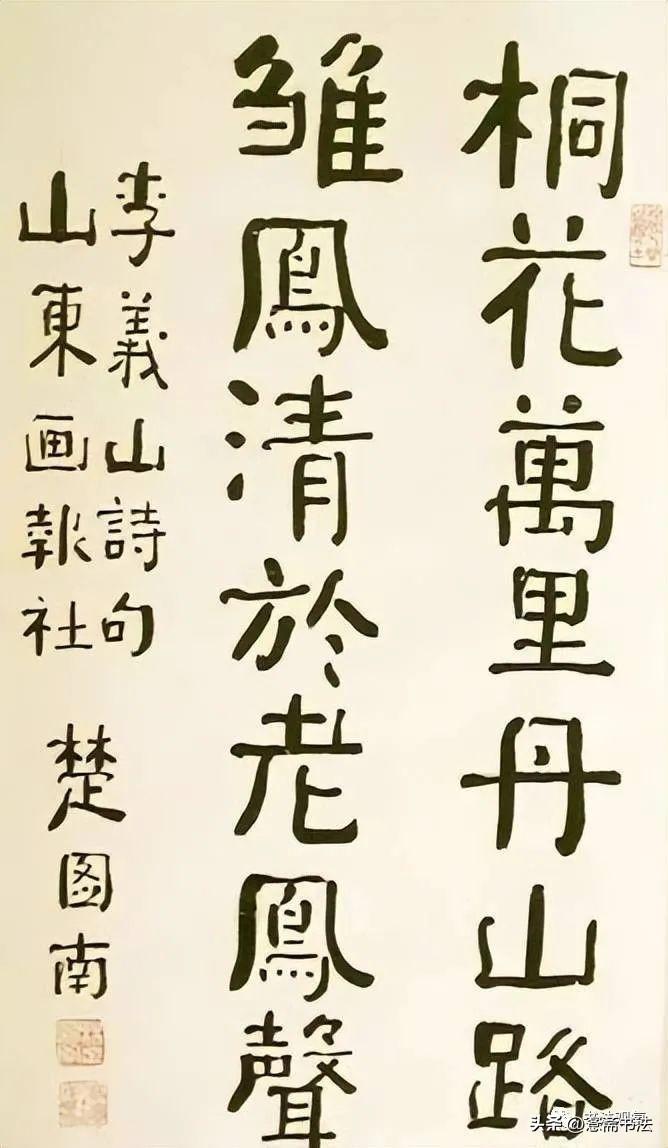 桐花萬里丹山路
雛鳳清於老鳳聲
李義山詩句
山東画報社
楚图南
头条@薏斋书法